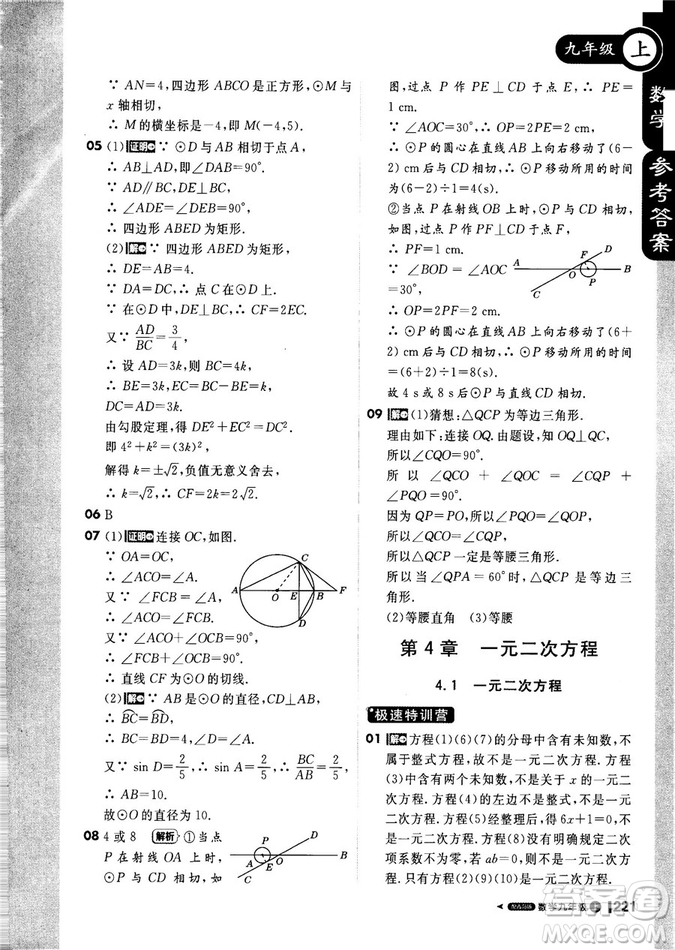 九年级 上
数学
参考答案
∵ AN=4,四边形 ABCO 是正方形,⊙M 与
x 轴相切,
∴ M 的横坐标是-4,即 M(-4,5).
05 (1)证明 ∵ ⊙D 与 AB 相切于点 A,
∴ AB⊥AD,∴ ∠A=90°.
又∵ AD∥BC,DE⊥BC,
∴ ∠ADE=90°.
∴ 四边形 ABED 为矩形.
(2)解 ∵ 四边形 ABED 为矩形,
∴ DE=AB=4.
∵ DA=DC,∴ 点 C 在⊙D 上.
∵ 在⊙D 中,DE⊥CF,∴ CF=2EC.
又∵ AD/BC=3/4,
∴ 设 AD=3k,则 BC=4k.
∴ BE=3k,EC=BC-BE=4k-3k=k,
DC=AD=3k.
由勾股定理,得 DE²+EC²=DC²,
即 4²+k²=(3k)².
解得 k=±√2,负值无意义舍去.
∴ k=√2,∴ CF=2EC=2√2.
06 B
07 (1)证明 连接 OC,如图.
∵ OA=OC,
∴ ∠ACO=∠A.
又∵ ∠FCB=∠A,
∴ ∠ACO=∠FCB.
又∵ AB 是⊙O 的直径,
∴ ∠ACO+∠OCB=90°.
∴ ∠FCB+∠OCB=90°.
∴ 直线 CF 为⊙O 的切线.
(2)解 ∵ AB 是⊙O 的直径,CD⊥AB,
∴ BC=BD.
∴ BC=BD=4,∠A=∠D.
又∵ sin D=2/5,∴ sin A=BC/AB=4/AB=2/5.
∴ AB=10.
故⊙O 的直径为 10.
A O E B F C D
08 4 或 8 解析 ①当点
P 在射线 OA 上时,如
P D A O E B C
图,过点 P 作 PE⊥CD 于点 E,∴ PE=
1 cm.
∵ ∠AOC=30°,∴ OP=2PE=2 cm.
∴ ⊙P 的圆心在直线 AB 上向右移动了(6-
2)cm 后与 CD 相切.∴ ⊙P 移动所用的时间
为(6-2)÷1=4(s).
②当点 P 在射线 OB 上时,如图,过点 P 作
PF⊥CD 于点 F,
∴ PF=1 cm.
∵ ∠BOD=∠AOC
=30°,
∴ OP=2PF=2 cm.
A O F D B P C
∴ ⊙P 的圆心在直线 AB 上向右移动了(6+
2)cm 后与 CD 相切.∴ ⊙P 移动所用的时间
为(6+2)÷1=8(s).
故 4 s 或 8 s 后⊙P 与直线 CD 相切.
09 解 (1)猜想:△QCP 为等边三角形.
理由如下:连接 OQ.由题设,知 OQ⊥CQ,
所以∠CQO=90°.
所以 ∠OQP + ∠CQP = ∠CQP +
∠PQC=90°.
因为 QP=PO,所以∠PQO=∠QOP.
所以∠CQP=∠C.
所以△QCP 是等腰三角形.
所以当∠QPA=60°时,△QCP 是等边三
角形.
(2)等腰直角 (3)等腰
第 4 章 一元二次方程
4.1 一元二次方程
极速特训营
01 解 方程(1)(6)(7)的分母中含有未知数,不
属于整式方程,故不是一元二次方程.方程
(3)中含有两个未知数,不是关于 x 的一元二
次方程.方程(4)的左边不是整式,故不是一元
二次方程.方程(5)经整理后,得 6x+1=0,不
是一元二次方程.方程(8)没有明确规定二次
项系数不为零,若 ab=0,则不是一元二次方
程.只有方程(2)(9)(10)是一元二次方程.
数学九年级 上 221